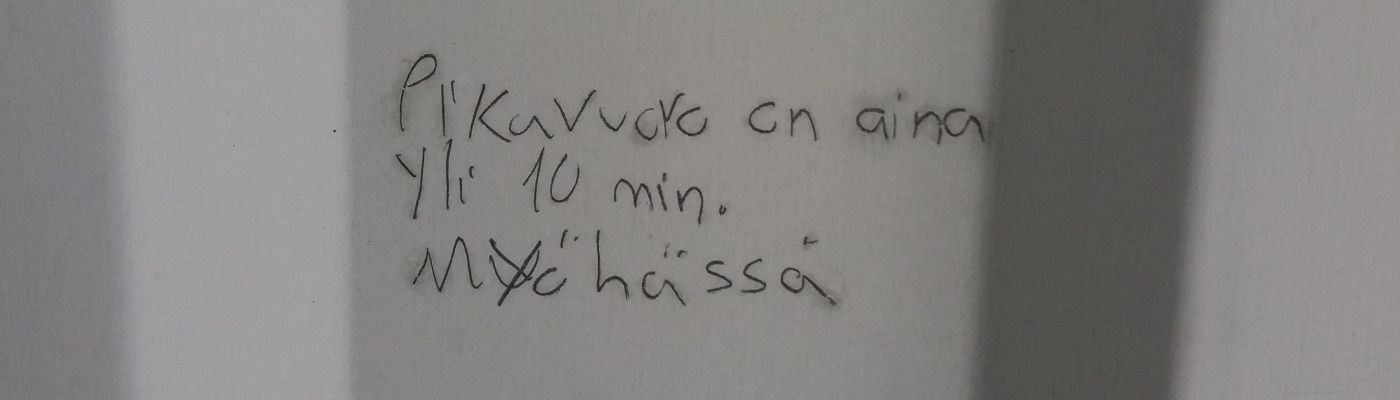 Pikavuoro on aina
yli 10 min.
Myöhässä